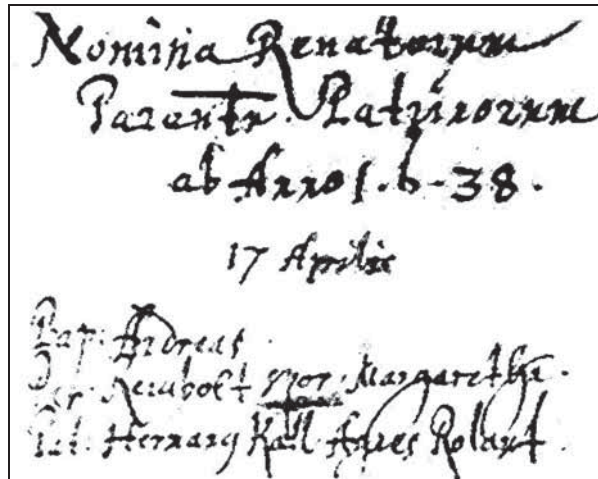 Nomina Renatorum
Parentū. Patrinorum
ab Anno 1.6-38.
17 Aprilis
Bap: Andreas.
Par. Reinbolt uxor. Margaretha.
Pat. Hermang Kall Agnes Rolant.